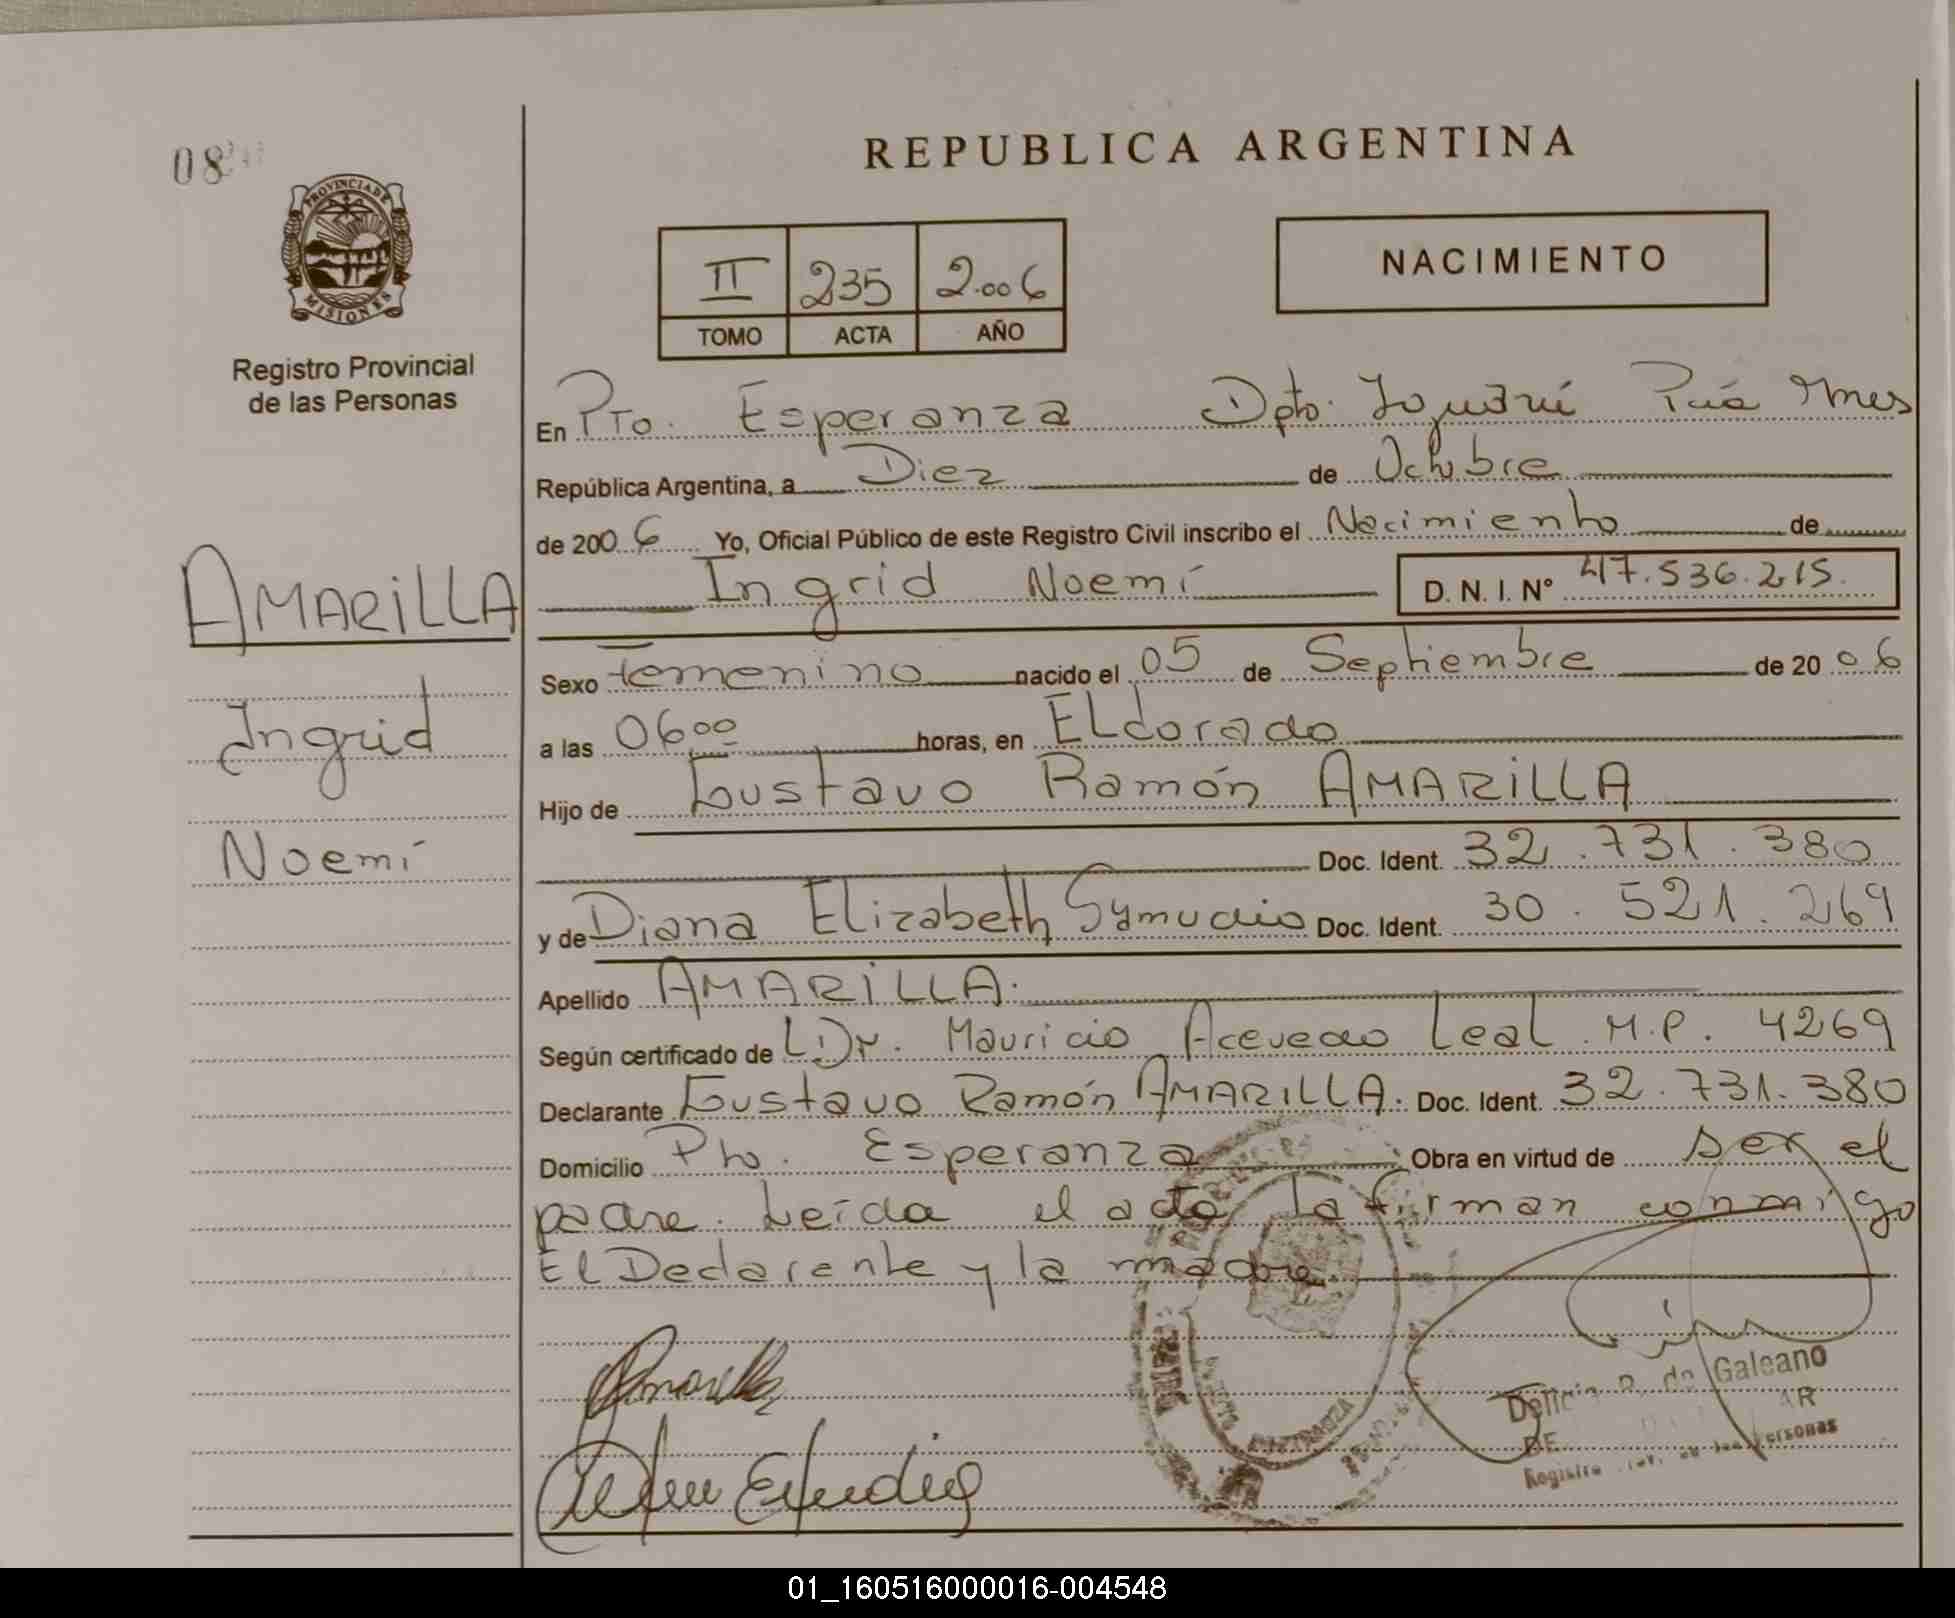 REPUBLICA ARGENTINA
08
PROVINCIA DE
MISIONES
Registro Provincial
de las Personas
II 235 2.006
TOMO ACTA AÑO
NACIMIENTO
En Pto. Esperanza Dpto. Iguazú Pcia Mnes
República Argentina, a Diez de Octubre
de 2006 Yo, Oficial Público de este Registro Civil inscribo el Nacimiento de
Ingrid Noemí D. N. I. N° 47.536.215.
AMARILLA
Ingrid
Noemí
Sexo Femenino nacido el 05 de Septiembre de 20 06
a las 06 00 horas, en ELdorado
Hijo de Gustavo Ramón AMARILLA
Doc. Ident. 32.731.380
y de Diana Elizabeth Symudio Doc. Ident. 30.521.269
Apellido AMARILLA.
Según certificado de Dr. Mauricio Acevedo Leal M.P. 4269
Declarante Gustavo Ramón AMARILLA. Doc. Ident. 32.731.380
Domicilio Pto. Esperanza Obra en virtud de ser el
padre. Leída el acta la firman conmigo
El Declarante y la madre.
Amarilla
de Galeano
Registro personas
01_160516000016-004548